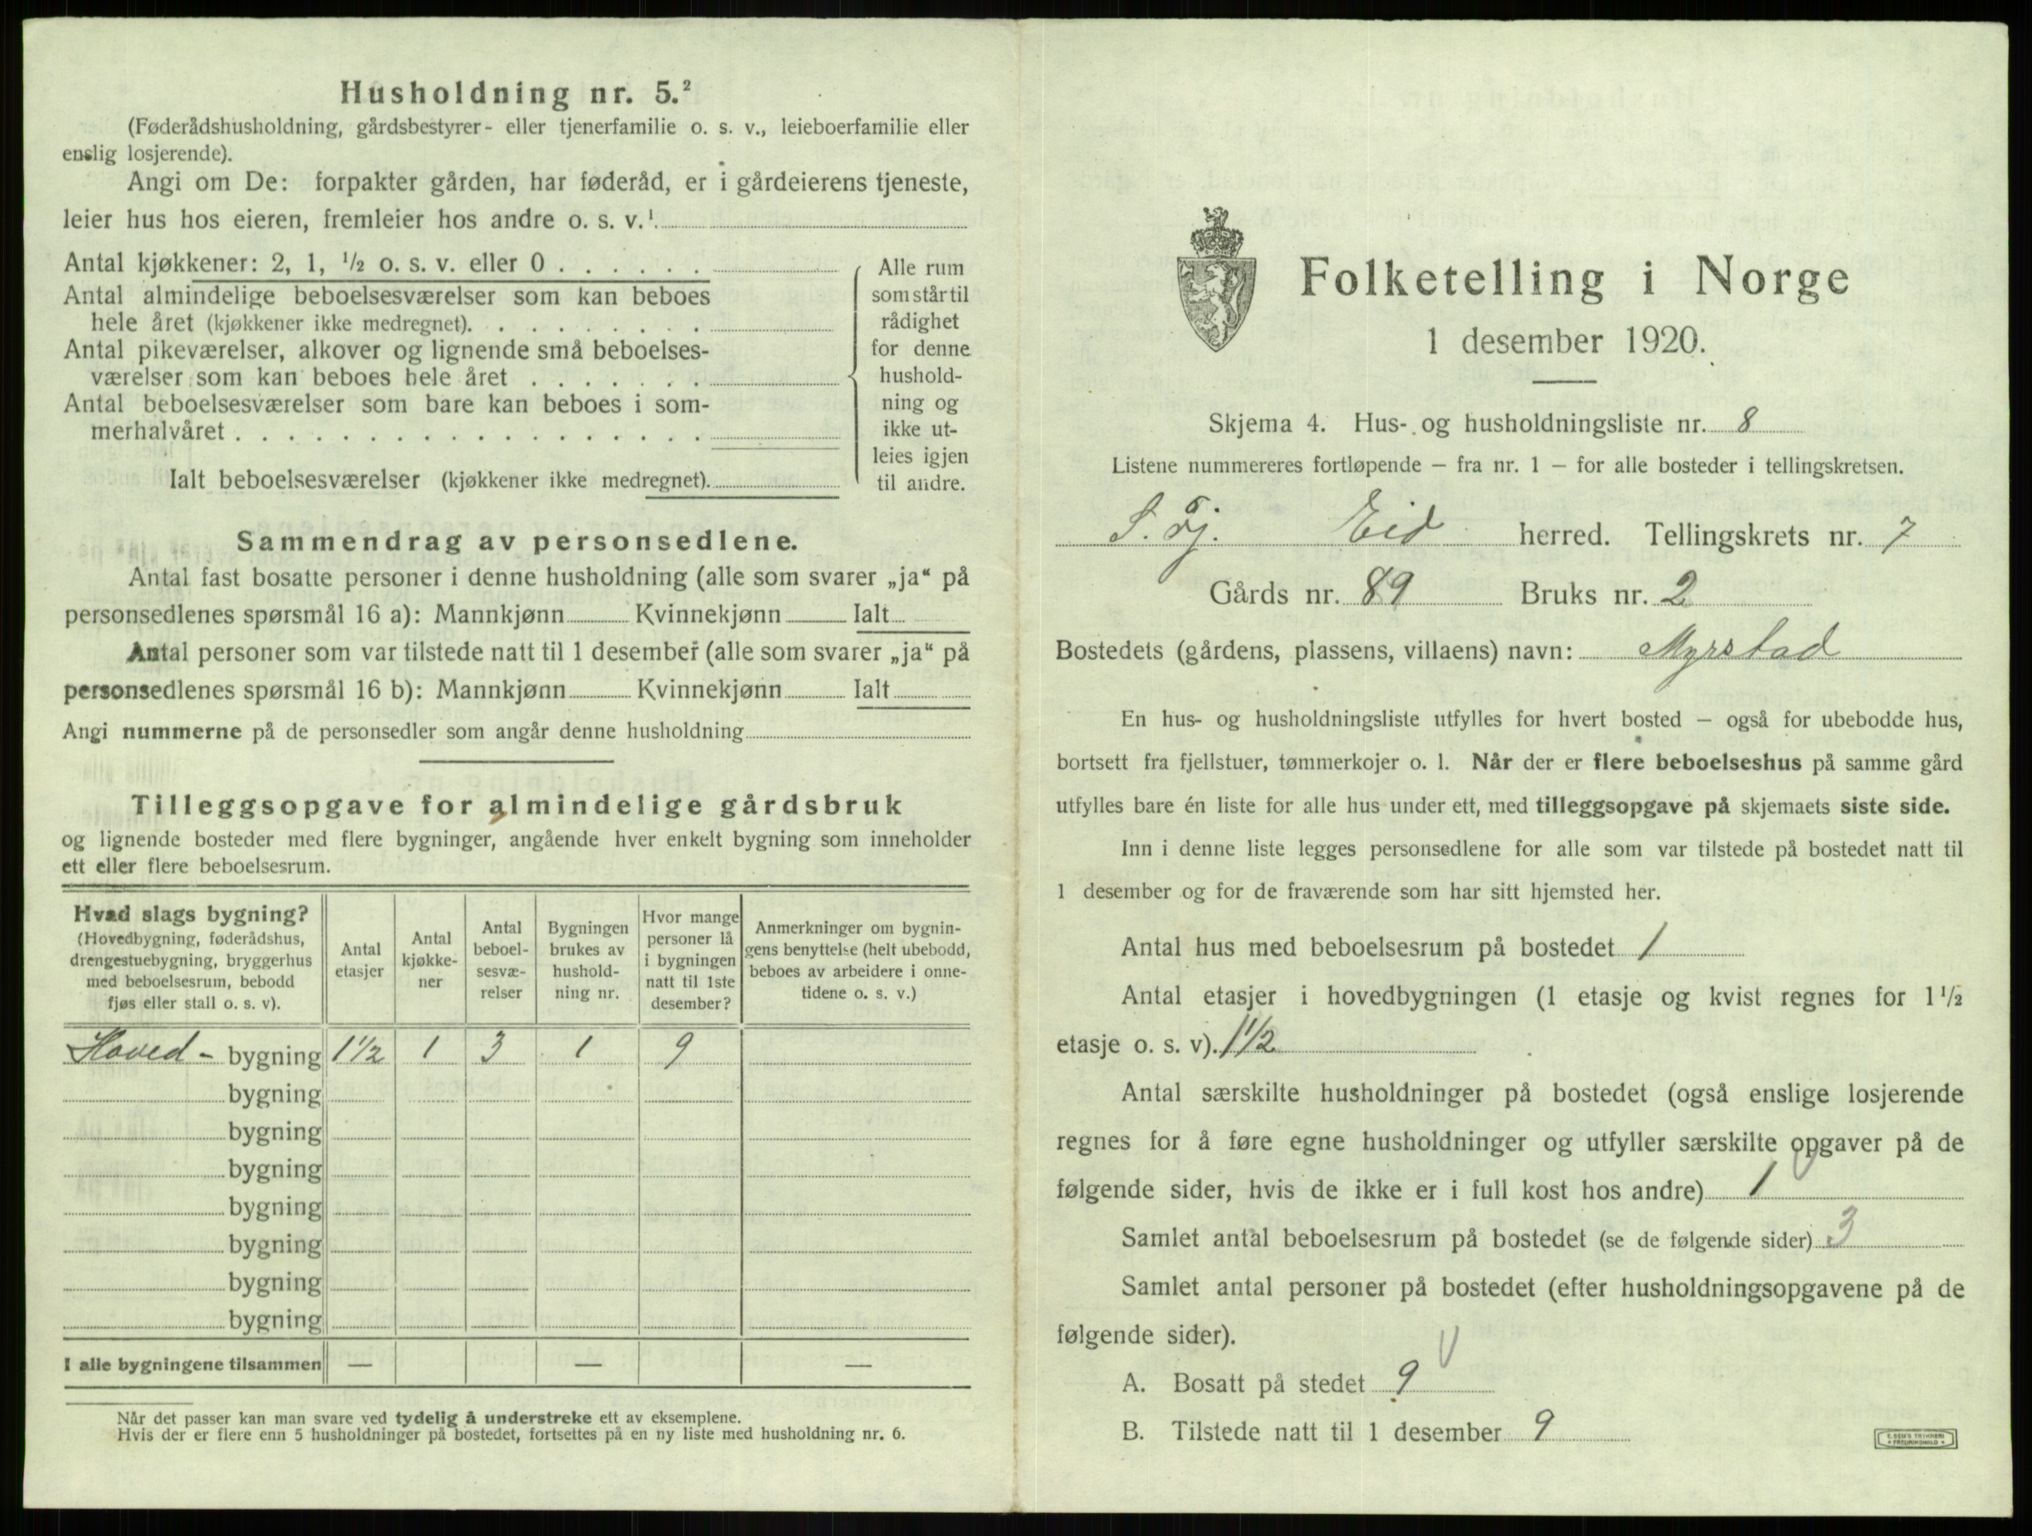 Husholdning nr. 5.²
(Føderådshusholdning, gårdsbestyrer- eller tjenerfamilie o. s. v., leieboerfamilie eller
enslig losjerende).
Angi om De: forpakter gården, har føderåd, er i gårdeierens tjeneste,
leier hus hos eieren, fremleier hos andre o. s. v.¹
Antal kjøkkener: 2, 1, ½ o. s. v. eller 0 . . . . . .
Antal almindelige beboelsesværelser som kan beboes
hele året (kjøkkener ikke medregnet). . . . . . . . .
Antal pikeværelser, alkover og lignende små beboelses-
værelser som kan beboes hele året . . . . . . .
Antal beboelsesværelser som bare kan beboes i som-
merhalvåret . . . . . . . . . . . . . . . . . .
Ialt beboelsesværelser (kjøkkener ikke medregnet).
Alle rum
som står til
rådighet
for denne
hushold-
ning og
ikke ut-
leies igjen
til andre.
Sammendrag av personsedlene.
Antal fast bosatte personer i denne husholdning (alle som svarer „ja“ på
personsedlenes spørsmål 16 a): Mannkjønn Kvinnekjønn Ialt
Antal personer som var tilstede natt til 1 desember (alle som svarer „ja“ på
personsedlenes spørsmål 16 b): Mannkjønn Kvinnekjønn Ialt
Angi nummerne på de personsedler som angår denne husholdning
Tilleggsopgave for almindelige gårdsbruk
og lignende bosteder med flere bygninger, angående hver enkelt bygning som inneholder
ett eller flere beboelsesrum.
Hvad slags bygning?
(Hovedbygning, føderådshus,
drengestuebygning, bryggerhus
med beboelsesrum, bebodd
fjøs eller stall o. s. v).
Antal
etasjer
Antal
kjøkke-
ner
Antal
beboel-
sesvæ-
relser
Bygningen
brukes av
hushold-
ning nr.
Hvor mange
personer lå
i bygningen
natt til 1ste
desember?
Anmerkninger om bygnin-
gens benyttelse (helt ubebodd,
beboes av arbeidere i onne-
tidene o. s. v.)
Hoved - bygning 1½ 1 3 1 9
bygning
bygning
bygning
bygning
bygning
bygning
bygning
I alle bygningene tilsammen — — —
Når det passer kan man svare ved tydelig å understreke ett av eksemplene.
Hvis der er flere enn 5 husholdninger på bostedet, fortsettes på en ny liste med husholdning nr. 6.
Folketelling i Norge
1 desember 1920.
Skjema 4. Hus- og husholdningsliste nr. 8
Listene nummereres fortløpende – fra nr. 1 – for alle bosteder i tellingskretsen.
Eid herred. Tellingskrets nr. 7
Gårds nr. 89 Bruks nr. 2
Bostedets (gårdens, plassens, villaens) navn: Myrstad
En hus- og husholdningsliste utfylles for hvert bosted – også for ubebodde hus,
bortsett fra fjellstuer, tømmerkojer o. l. Når der er flere beboelseshus på samme gård
utfylles bare én liste for alle hus under ett, med tilleggsopgave på skjemaets siste side.
Inn i denne liste legges personsedlene for alle som var tilstede på bostedet natt til
1 desember og for de fraværende som har sitt hjemsted her.
Antal hus med beboelsesrum på bostedet 1
Antal etasjer i hovedbygningen (1 etasje og kvist regnes for 1½
etasje o. s. v). 1½
Antal særskilte husholdninger på bostedet (også enslige losjerende
regnes for å føre egne husholdninger og utfyller særskilte opgaver på de
følgende sider, hvis de ikke er i full kost hos andre) 1
Samlet antal beboelsesrum på bostedet (se de følgende sider) 3
Samlet antal personer på bostedet (efter husholdningsopgavene på de
følgende sider).
A. Bosatt på stedet 9
B. Tilstede natt til 1 desember 9